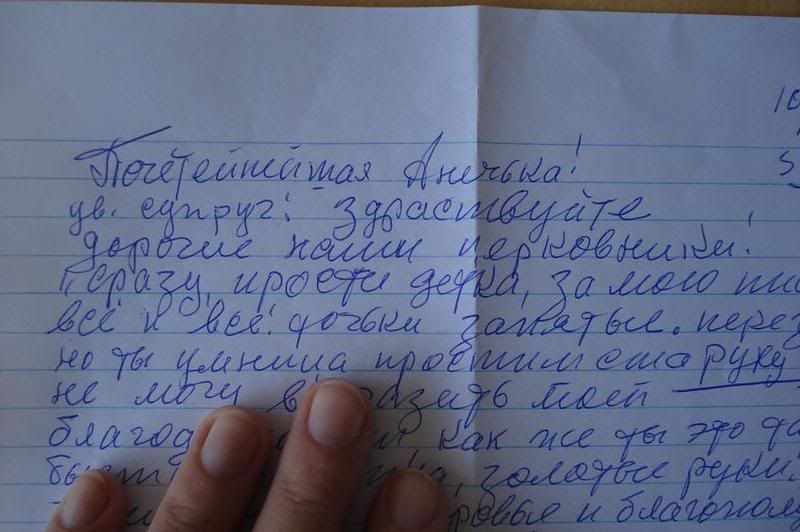 10
5
Почётейшая Анечька!
ув. супруг! здраствуйте
дорогие наши церковники!
Сразу, прости детка, за мою
всё и всё! дочьки занятые. перез
но ты умница простиш старуку
не могу моей
благод как же ты это
быст золотые руки,
и благопол